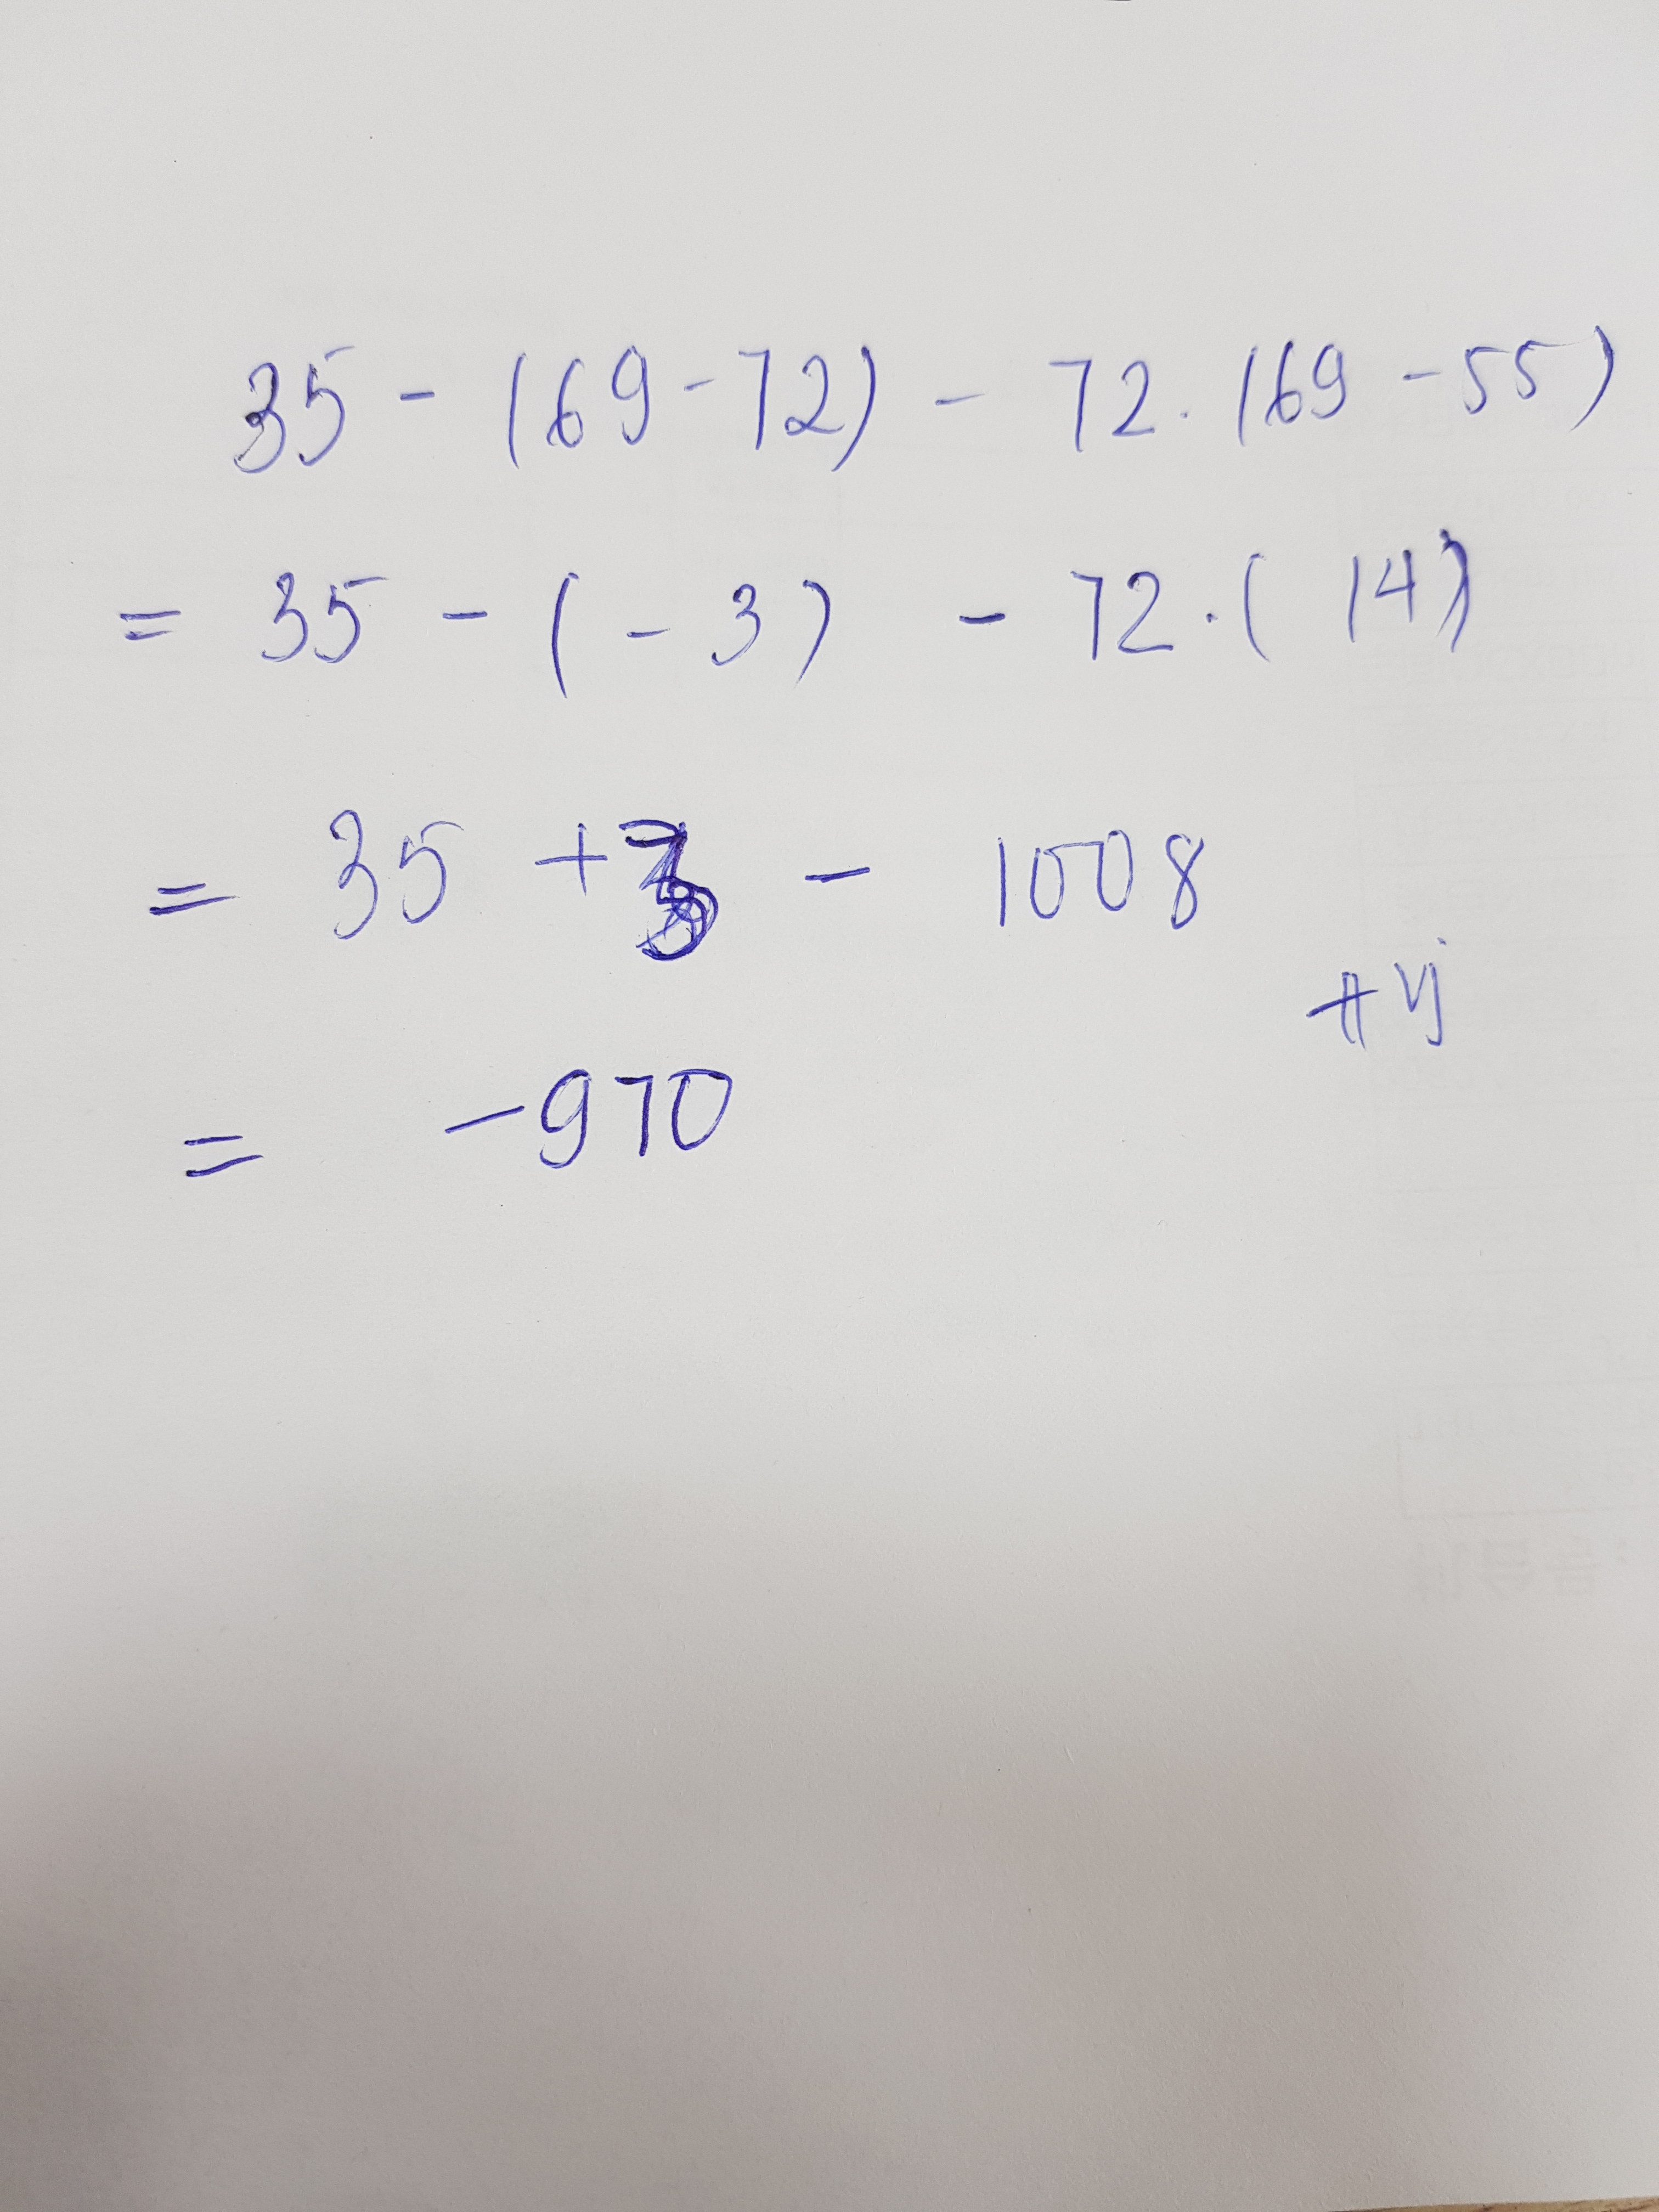 35 - (69 - 72) - 72 . (69 - 55)
= 35 - ( - 3 ) - 72 . ( 14 )
= 35 + 3 - 1008
= - 970